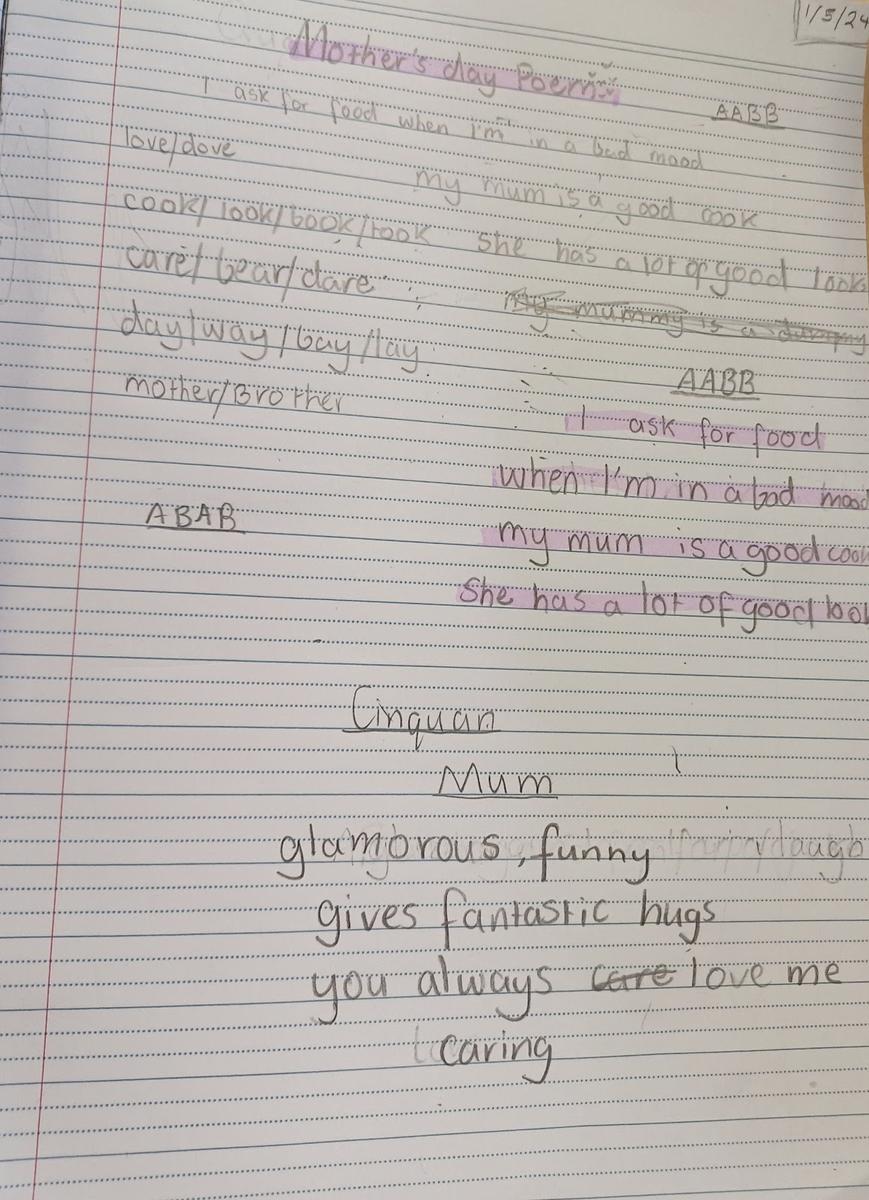 1/5/24
Mother's day Poem
AABB
I ask for food when I'm in a bad mood
love/dove
my mum is a good cook
cook/look/book/took
she has a lot of good looks
care/bear/dare
My mummy is a dummy
day/way/bay/lay
mother/Brother
AABB
I ask for food
when I'm in a bad mood
ABAB
my mum is a good coo
She has a lot of good loo
Cinquan
Mum
glamorous, funny
gives fantastic hugs
you always care love me
caring